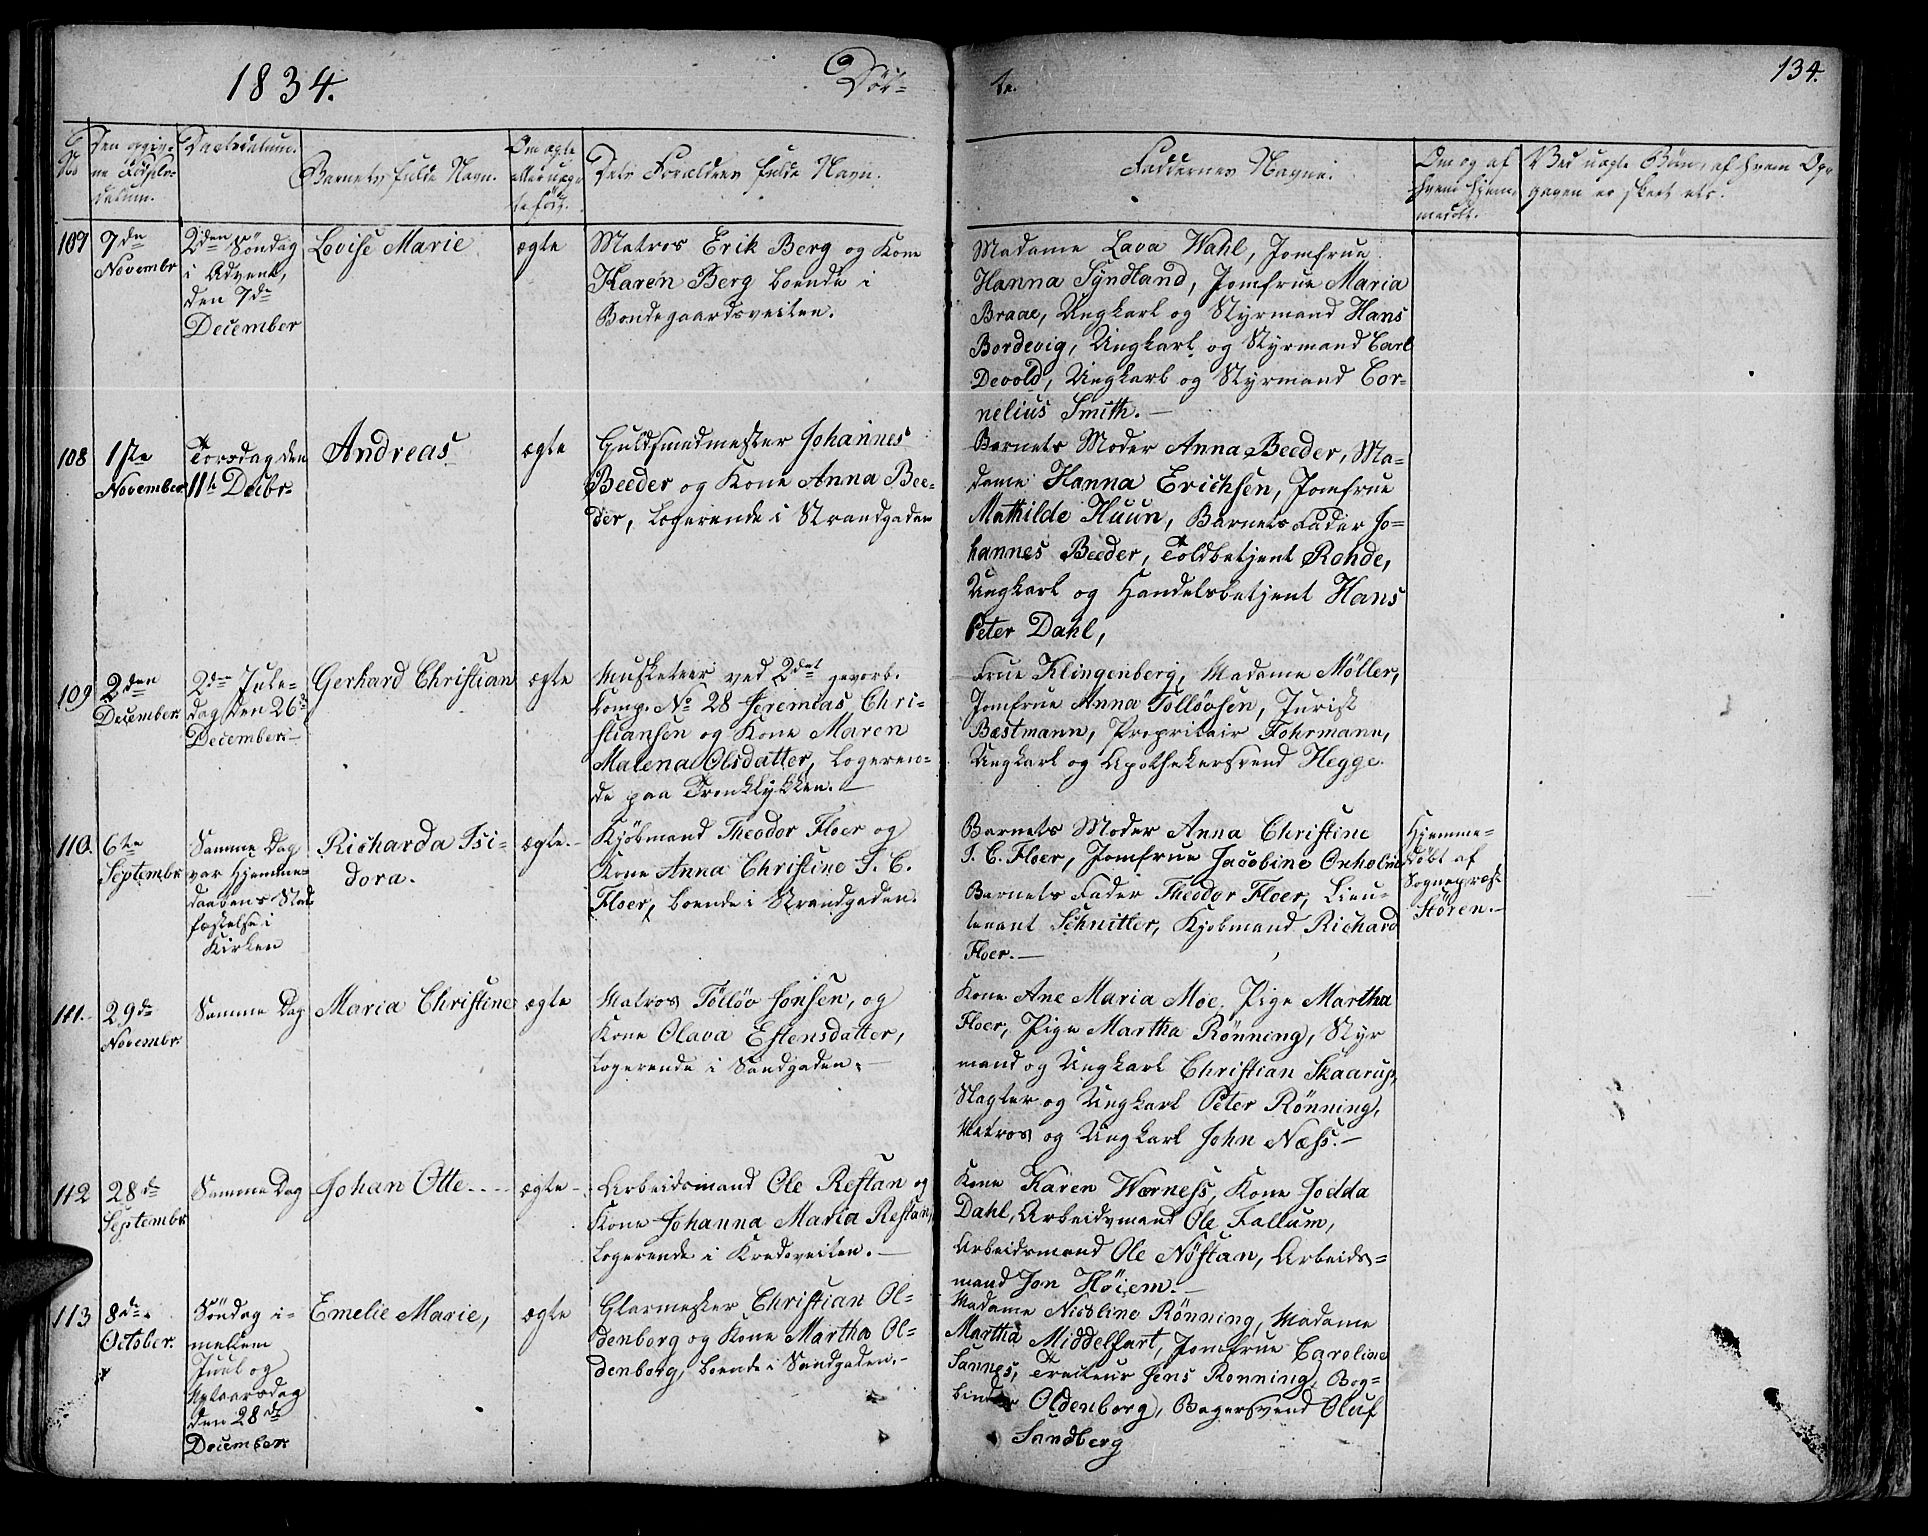 1834.
Døb=
te.
134.
No
Den opgiv=
ne Fødsels=
datum.
Daabsdatum.
Barnets fulde Navn.
Om ægte
eller uæg=
te født.
Dets Forældres fulde Navn.
Faddernes Navne.
Om og af
hvem hjem=
medøbt.
Ved uægte Børn, af hvem Op=
gaven er skeet etc.
107
7de
Novembr
2den Søndag
i Advent,
den 7de
December
Lovise Marie
ægte
Matros Erik Berg og Kone
Karen Berg boende i
Bondegaardsveiten.
Madame Lava Wahl, Jomfrue
Hanna Syndland, Jomfrue Maria
Braae, Ungkarl og Styrmand Hans
Bordevig, Ungkarl og Styrmand Carl
Devold, Ungkarl og Styrmand Cor=
nelius Smith. —
108
1ste
November
Torsdag den
11te Decbr
Andreas
ægte
Guldsmedmester Johannes
Beeder og Kone Anna Bee=
der, logerende i Strandgaden
Barnets Moder Anna Beeder, Ma=
dame Hanna Erichsen, Jomfrue
Mathilde Huun, Barnets Fader Jo=
hannes Beeder, Toldbetjent Rohde,
Ungkarl og Handelsbetjent Hans
Peter Dahl,
109
2den
December
2den Jule=
dag den 26d
December —
Gerhard Christian
ægte
Musketeer ved 2det gevorb.
Comp. No 28 Jeremias Chri=
stiansen og Kone Maren
Malena Olsdatter, logeren=
de paa Tronklykken. —
Frue Klingenberg, Madame Møller,
Jomfrue Anna Tolløøsen, Jurist
Bæstmann, Propritair Fohrmann,
Ungkarl og Apothekersvend Hegge.
110.
6te
Septembr
Samme Dag
var Hjemme=
daabens Stad
fæstelse i
Kirken
Richarda Isi=
dora.
ægte. —
Kjøbmand Theodor Floer og
Kone Anna Christine I. C.
Floer, boende i Strandgaden.
Barnets Moder Anna Christine
I. C. Floer, Jomfrue Jacobine Onholm
Barnets Fader Theodor Floer, Lieu=
tenant Schnitter, Kjøbmand Richard
Floer. —
Hjemme=
døbt af
Sognepræst
Støren. —
111. —
29de
Novembr.
Samme Dag
Maria Christine
ægte
Matros Tölløv Jonsen, og
Kone Olava Estensdatter,
logerende i Sandgaden. —
Kone Ane Maria Moe. Pige Martha
Floer, Pige Martha Rønning, Styr
mand og Ungkarl Christian Skaarup,
Slagter og Ungkarl Peter Rønning,
Matros og Ungkarl John Næss. —
112
28de
Septembr
Samme Dag
Johan Otte ----
ægte —
Arbeidsmand Ole Restan og
Kone Johanna Maria Restan,
logerende i Kredsveiten. —
Kone Karen Wærness, Kone Jodda
Dahl, Arbeidsmand Ole Fallum,
Arbeidsmand Ole Nøstan, Arbeids=
mand Jon Høiem. —
113
8de
October.
Søndag i=
mellem
Juul og
Nytaarsdag
den 28de
December
Emelie Marie,
ægte
Glarmester Christian Ol=
denborg og Kone Martha Ol=
denborg, boende i Sandgaden. —
Madame Nicoline Rønning, Madame
Martha Middelfart, Jomfrue Caroline
Sannes, Tracteur Jens Rønning, Bog=
binder Oldenborg, Bagersvend Oluf
Sandberg